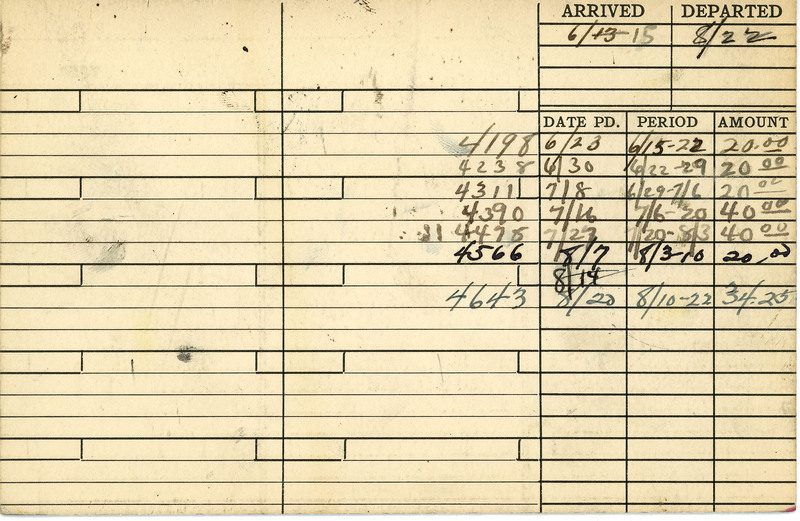 ARRIVED DEPARTED
6/13-15 8/22
DATE PD. PERIOD AMOUNT
4198 6/23 6/15-22 20.00
4238 6/30 6/22-29 20 00
4311 7/8 6/29-7/6 20 00
4390 7/16 7/6-20 40 00
4475 7/23 7/20-8/3 40 00
4566 8/7 8/3-10 20.00
8/14
4643 8/20 8/10-22 34.25